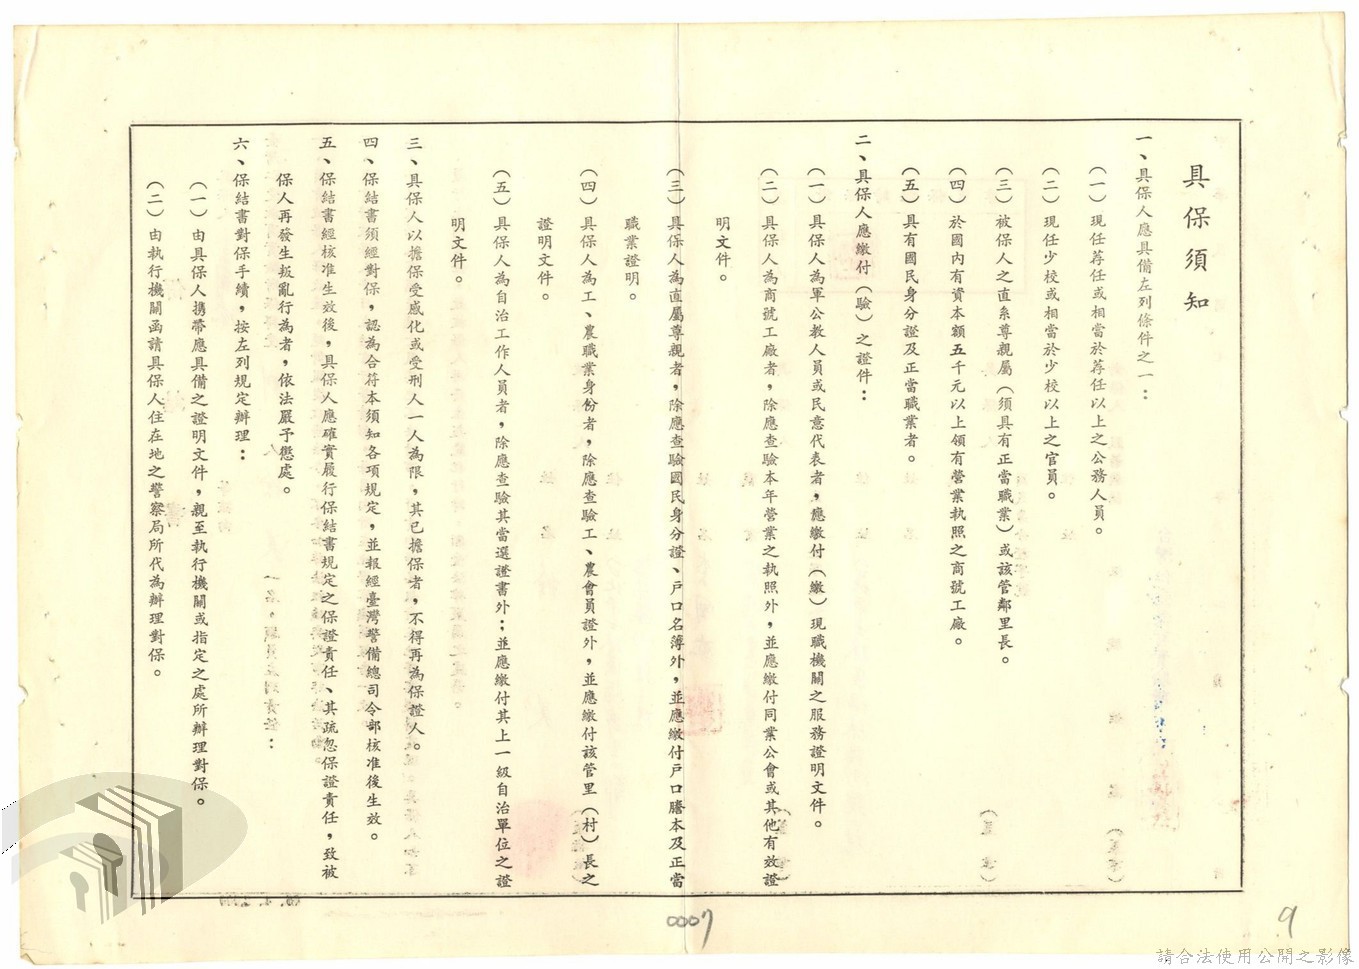 具保須知
一、具保人應具備左列條件之一：
（一）現任荐任或相當於荐任以上之公務人員。
（二）現任少校或相當於少校以上之官員。
（三）被保人之直系尊親屬（須具有正當職業）或該管鄰里長。
（四）於國內有資本額五千元以上領有營業執照之商號工廠。
（五）具有國民身分證及正當職業者。
二、具保人應繳付（驗）之證件：
（一）具保人為軍公教人員或民意代表者，應繳付（繳）現職機關之服務證明文件。
（二）具保人為商號工廠者，除應查驗本年營業之執照外，並應繳付同業公會或其他有效證
明文件。
（三）具保人為直屬尊親者，除應查驗國民身分證、戶口名簿外，並應繳付戶口謄本及正當
職業證明。
（四）具保人為工、農職業身份者，除應查驗工、農會員證外，並應繳付該管里（村）長之
證明文件。
（五）具保人為自治工作人員者，除應查驗其當選證書外；並應繳付其上一級自治單位之證
明文件。
三、具保人以擔保受感化或受刑人一人為限，其已擔保者，不得再為保證人。
四、保結書須經對保，認為合符本須知各項規定，並報經臺灣警備總司令部核准後生效。
五、保結書經核准生效後，具保人應確實履行保結書規定之保證責任、其疏忽保證責任，致被
保人再發生叛亂行為者，依法嚴予懲處。
六、保結書對保手續，按左列規定辦理：
（一）由具保人携帶應具備之證明文件，親至執行機關或指定之處所辦理對保。
（二）由執行機關函請具保人住在地之警察局所代為辦理對保。
0007
9
請合法使用公開之影像